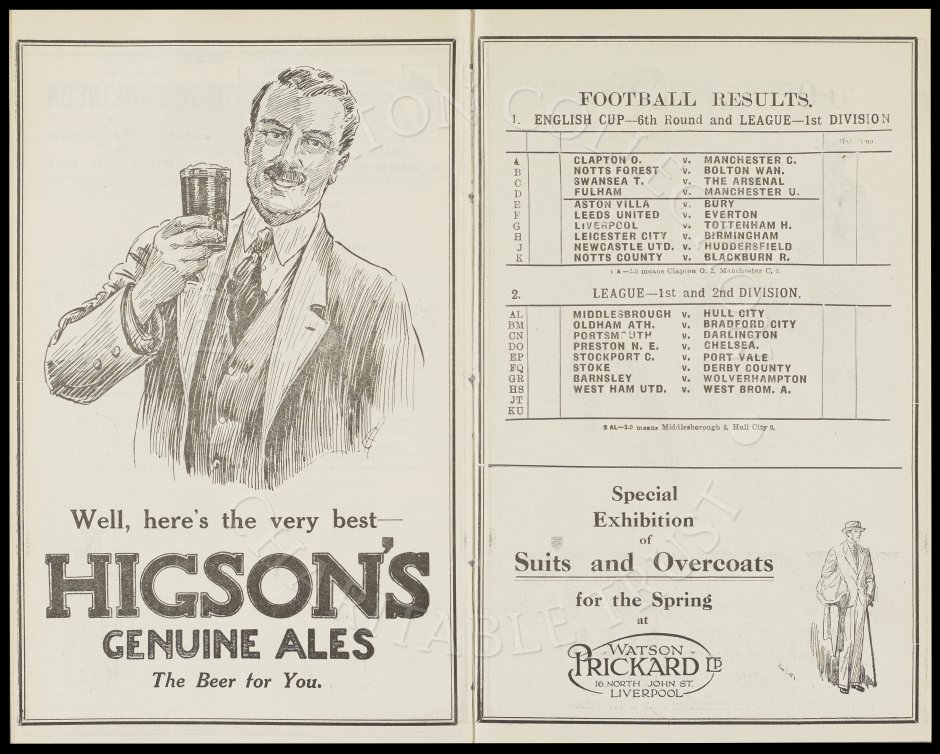 Well, here's the very best—
HIGSON'S
GENUINE ALES
The Beer for You.
FOOTBALL RESULTS.
1. ENGLISH CUP—6th Round and LEAGUE—1st DIVISION
Half-time
A CLAPTON O. v. MANCHESTER C.
B NOTTS FOREST v. BOLTON WAN.
C SWANSEA T. v. THE ARSENAL
D FULHAM v. MANCHESTER U.
E ASTON VILLA v. BURY
F LEEDS UNITED v. EVERTON
G LIVERPOOL v. TOTTENHAM H.
H LEICESTER CITY v. BIRMINGHAM
J NEWCASTLE UTD. v. HUDDERSFIELD
K NOTTS COUNTY v. BLACKBURN R.
1 A—2.0 means Clapton O. 2, Manchester C. 0.
2. LEAGUE—1st and 2nd DIVISION.
AL MIDDLESBROUGH v. HULL CITY
BM OLDHAM ATH. v. BRADFORD CITY
CN PORTSMOUTH v. DARLINGTON
DO PRESTON N. E. v. CHELSEA.
EP STOCKPORT C. v. PORT VALE
FQ STOKE v. DERBY COUNTY
GR BARNSLEY v. WOLVERHAMPTON
HS WEST HAM UTD. v. WEST BROM. A.
JT
KU
2 AL—2.0 means Middlesborough 2, Hull City 0.
Special
Exhibition
of
Suits and Overcoats
for the Spring
at
WATSON
PRICKARD LTD
16, NORTH JOHN ST.
LIVERPOOL